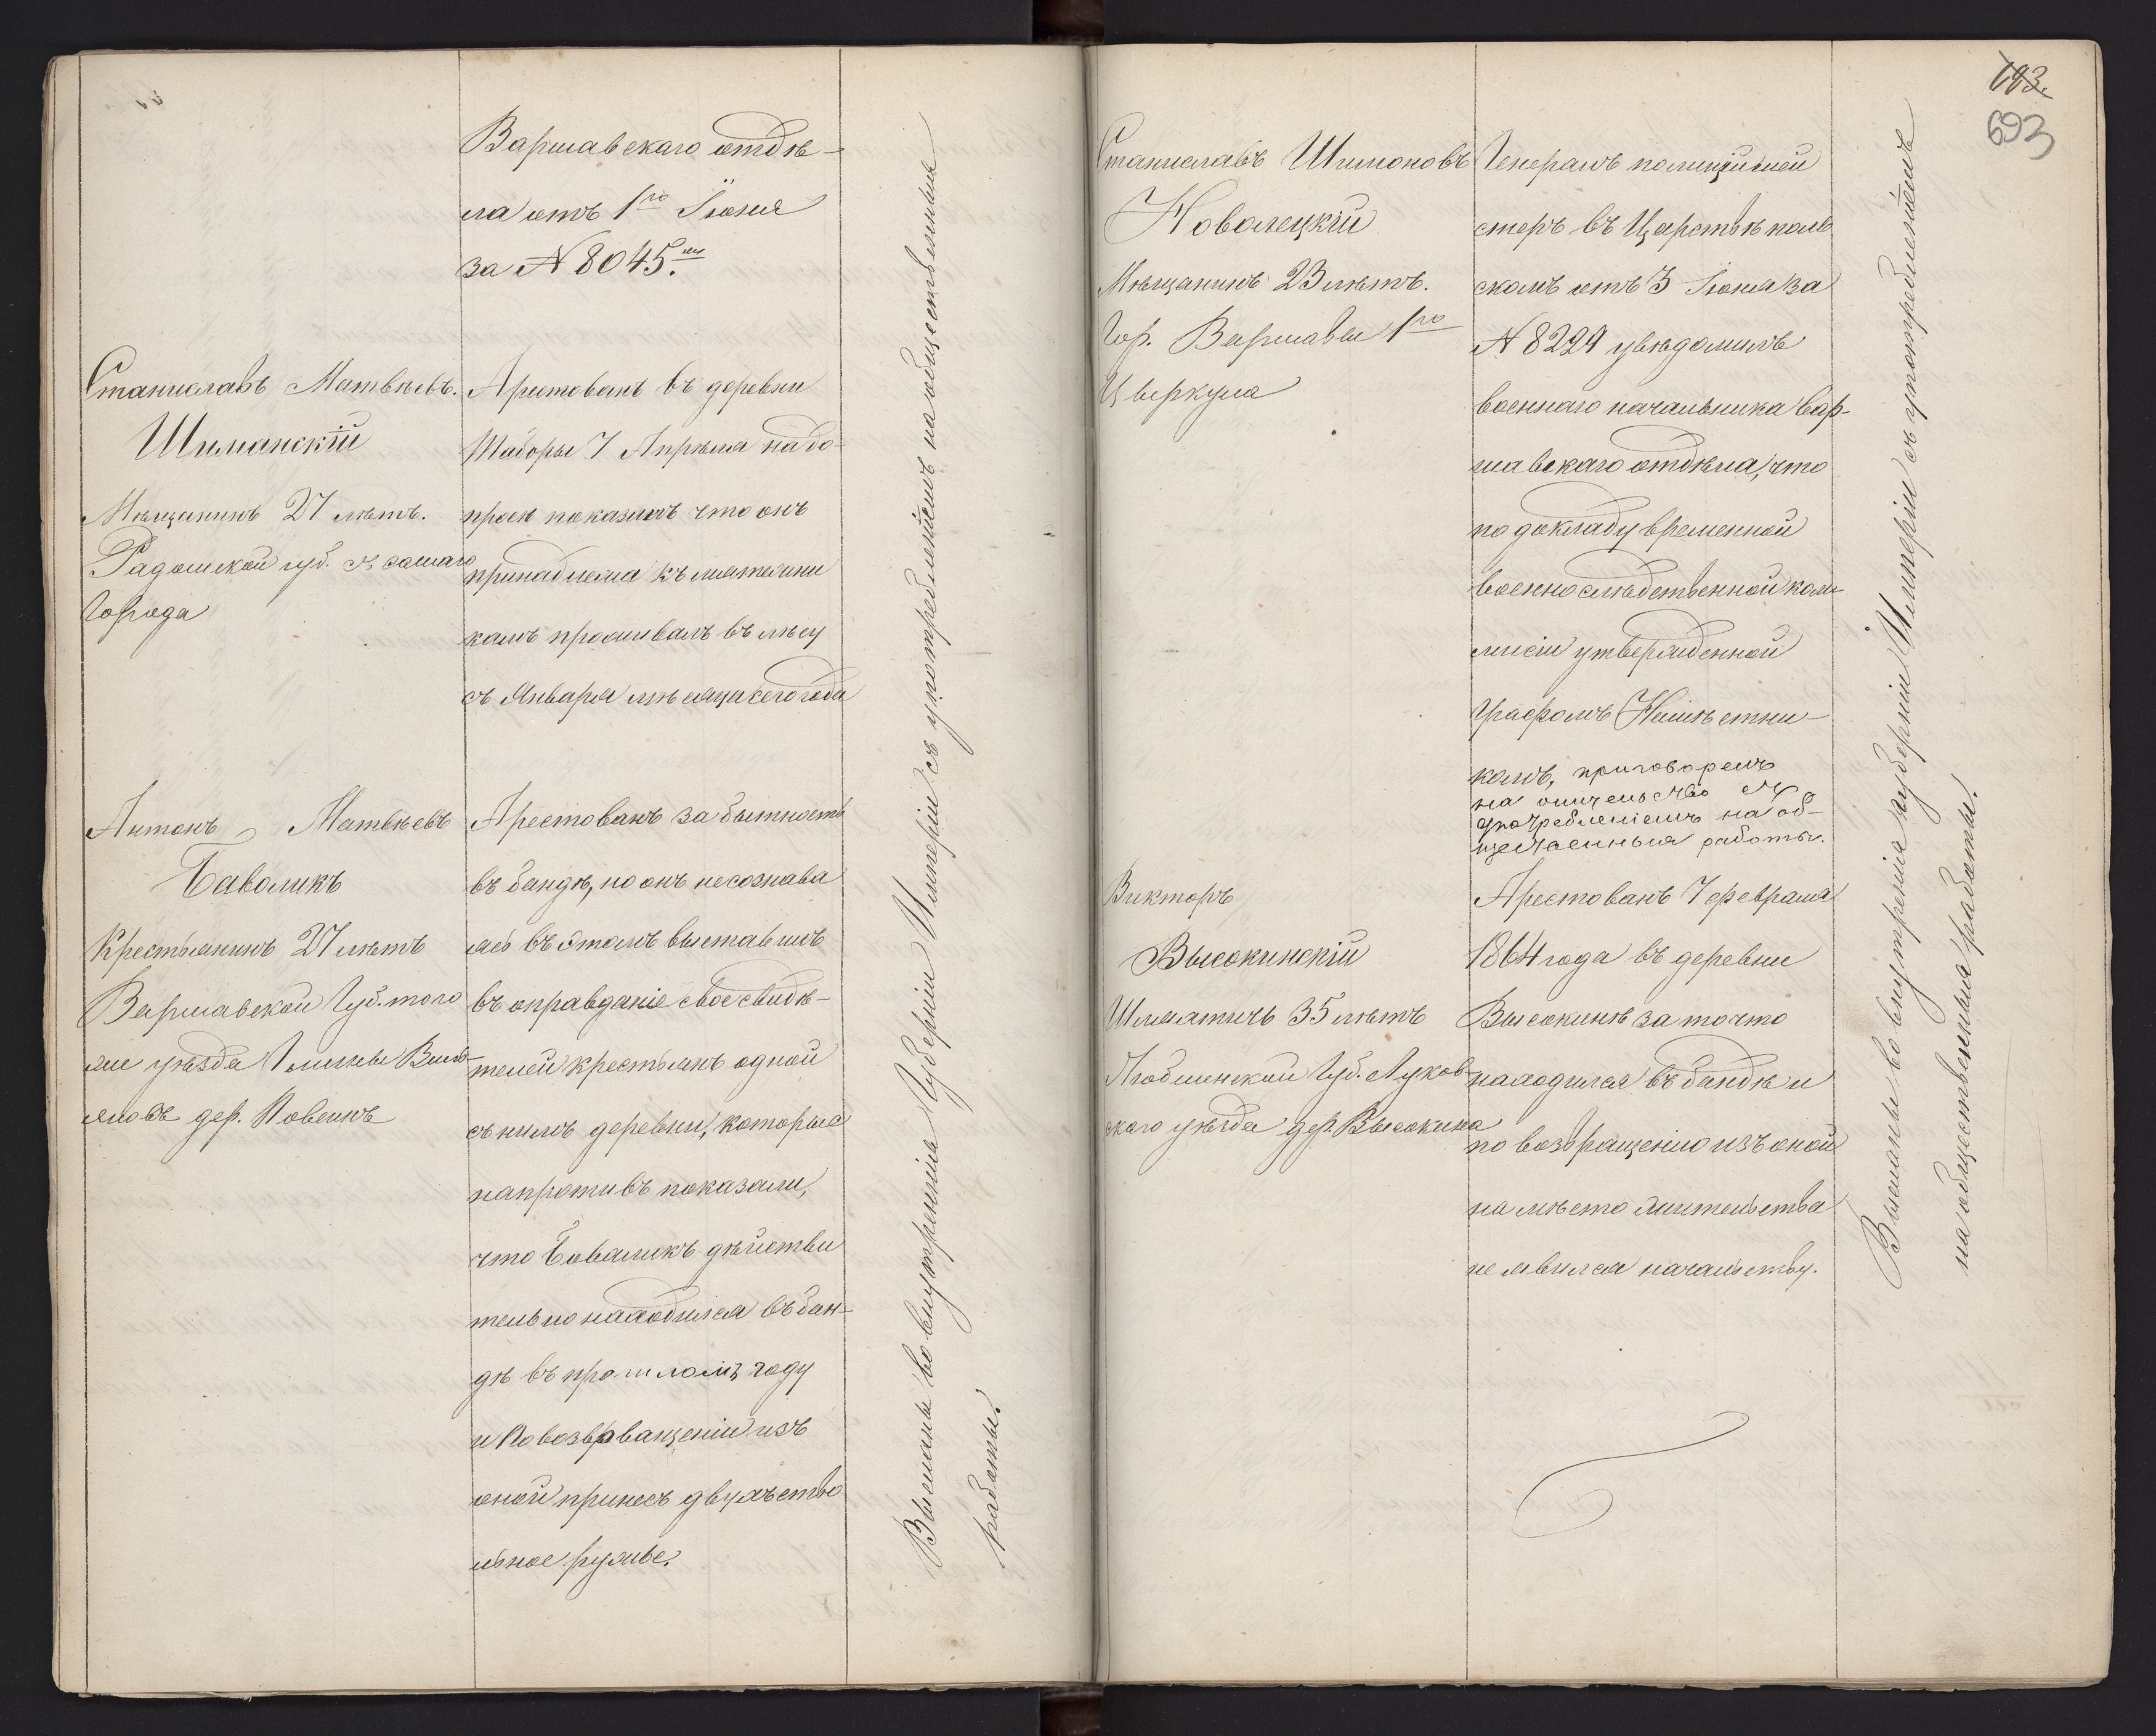 Варшавскаго отдѣ-
ла отъ 1го Іюня
за № 8045.мъ
Станиславъ Матвѣевъ.
Шиманскій
Мѣщанинъ 27 лѣтъ.
Радомской губ. съ самаго
Города
Аристованъ въ деревни
Таборы 7 Апрѣля на до-
просѣ показалъ что онъ
принадлежа къ мятежни
камъ проживалъ въ лѣсу
съ Января мѣсяца сего года
Антонъ Матвѣевъ
Баваликъ
Крестьянинъ 27 лѣтъ
Варшавской Губ. того
же уѣзда Гмины
дер.
Арестованъ за бытность
въ бандѣ, но онъ несознава
ясь въ этомъ выставилъ
въ оправданіе свое свидѣ-
телей крестьянъ одной
съ нимъ деревни, которые
напротивъ показали,
что Баваликъ дѣйстви
тельно находился въ бан-
дѣ въ прошломъ году
и по возвращеніи изъ
оной принесъ двухъство
льное ружье.
Высланы во внутреннія Губерніи Имперіи съ употребленіемъ на общественныя
работы.
693
Станиславъ Шимоновъ
Новалецкій
Мѣщанинъ 23 лѣтъ.
Гор. Варшавы 1го
Цыркула
Генералъ полиціймей
стеръ въ Царствѣ поль
скомъ отъ 3 Іюня за
№ 8229 увѣдомилъ
военнаго начальника вар-
шавскаго отдѣла, что
по докладу временной
военнослѣдственной ком
мисіи утвержденной
Графомъ Намѣстни-
комъ, приговоренъ
на съ
употребленіемъ на об-
щественныя работы.
Викторъ
Высокинскій
Шляхтичъ 35 лѣтъ
Люблинской Губ. Луков-
скаго уѣзда дер. Высокина
Арестованъ 7 февраля
1864 года въ деревни
Высокинѣ за то что
находился въ бандѣ и
по возвращенію изъ оной
на мѣсто жительства
не явился начальству.
Высланы во внутренія губерніи Имперіи съ употребленіемъ
на общественныя работы.